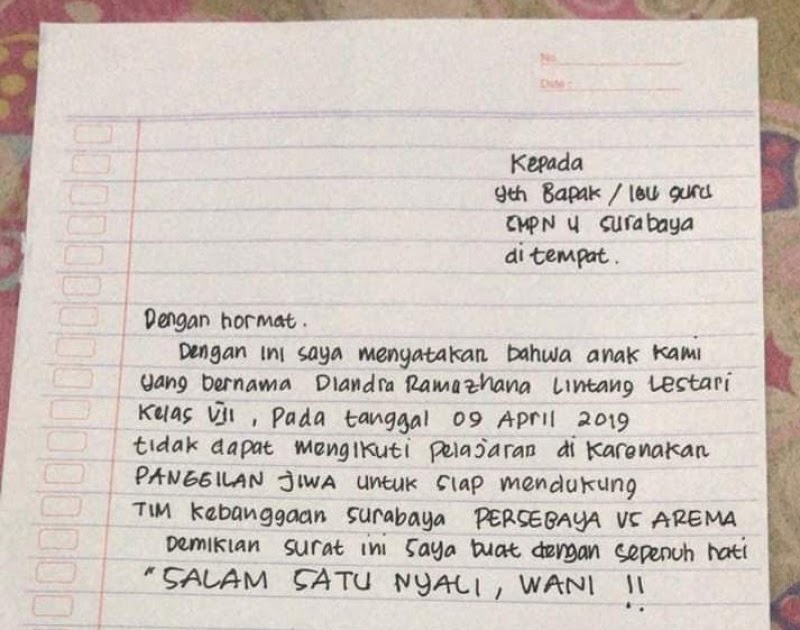 No.
Date :
Kepada
yth Bapak / Ibu guru
SMPN 4 Surabaya
di tempat.
Dengan hormat.
Dengan ini saya menyatakan bahwa anak kami
yang bernama Diandra Ramazhana Lintang Lestari
Kelas VJI, Pada tanggal 09 April 2019
tidak dapat mengikuti pelajaran di karenakan
PANGGILAN JIWA untuk siap mendukung
TIM kebanggaan surabaya PERSEBAYA VS AREMA
Demikian surat ini saya buat dengan sepenuh hati
"SALAM SATU NYALI, WANI !!